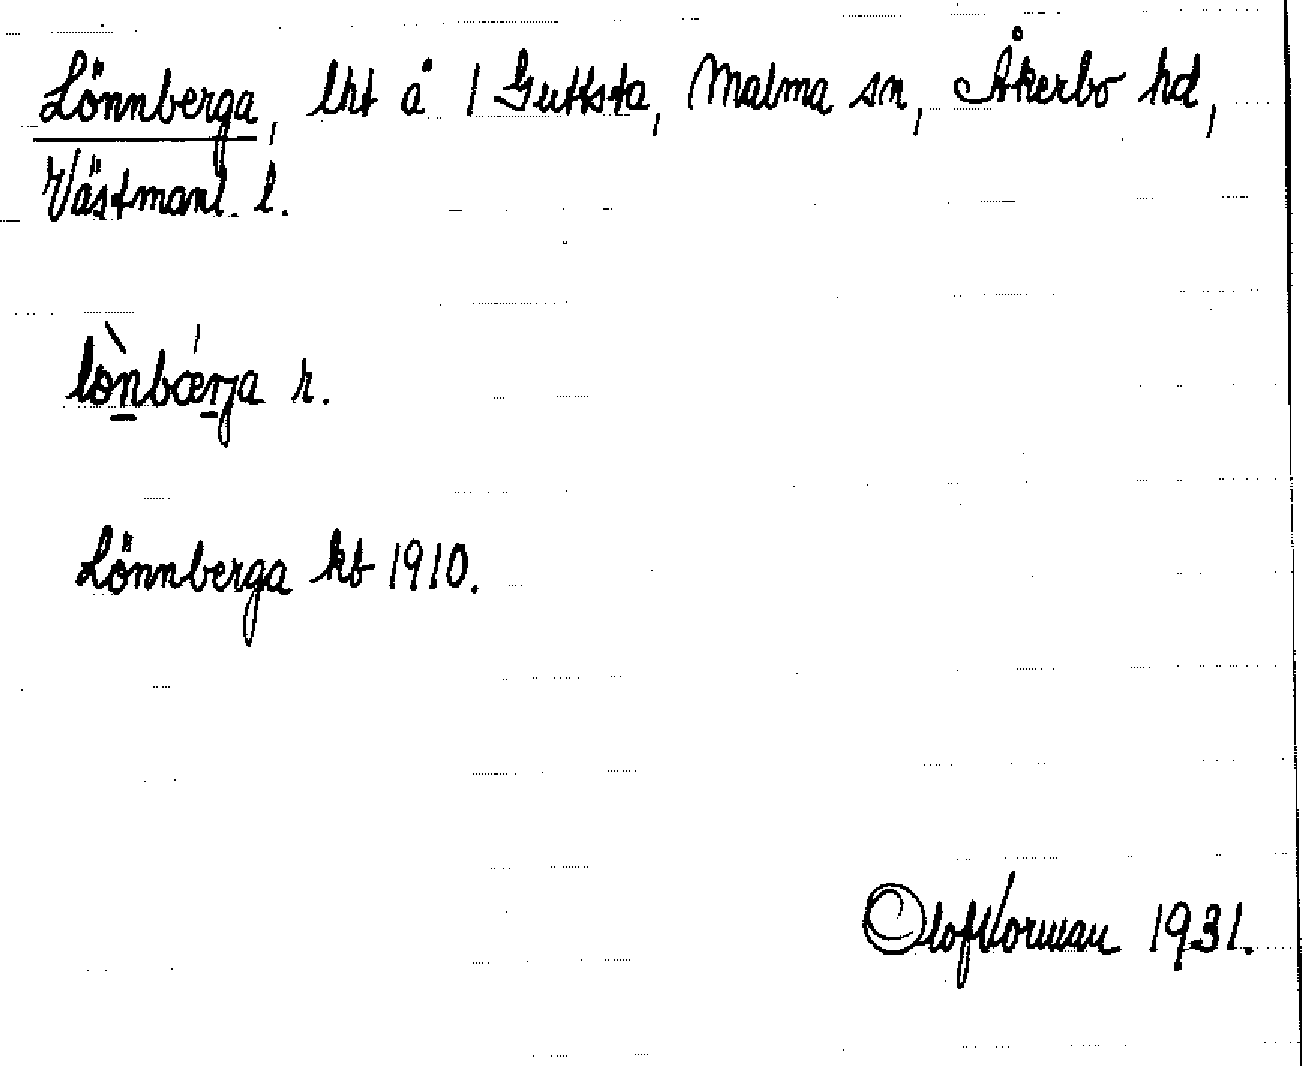 Lönnberga, lht å 1 Guttsta, Malma sn, Åkerbo hd,
Västmanl. l.
lö̀nbærja r.
Lönnberga kb 1910.
Olof Norman 1931.